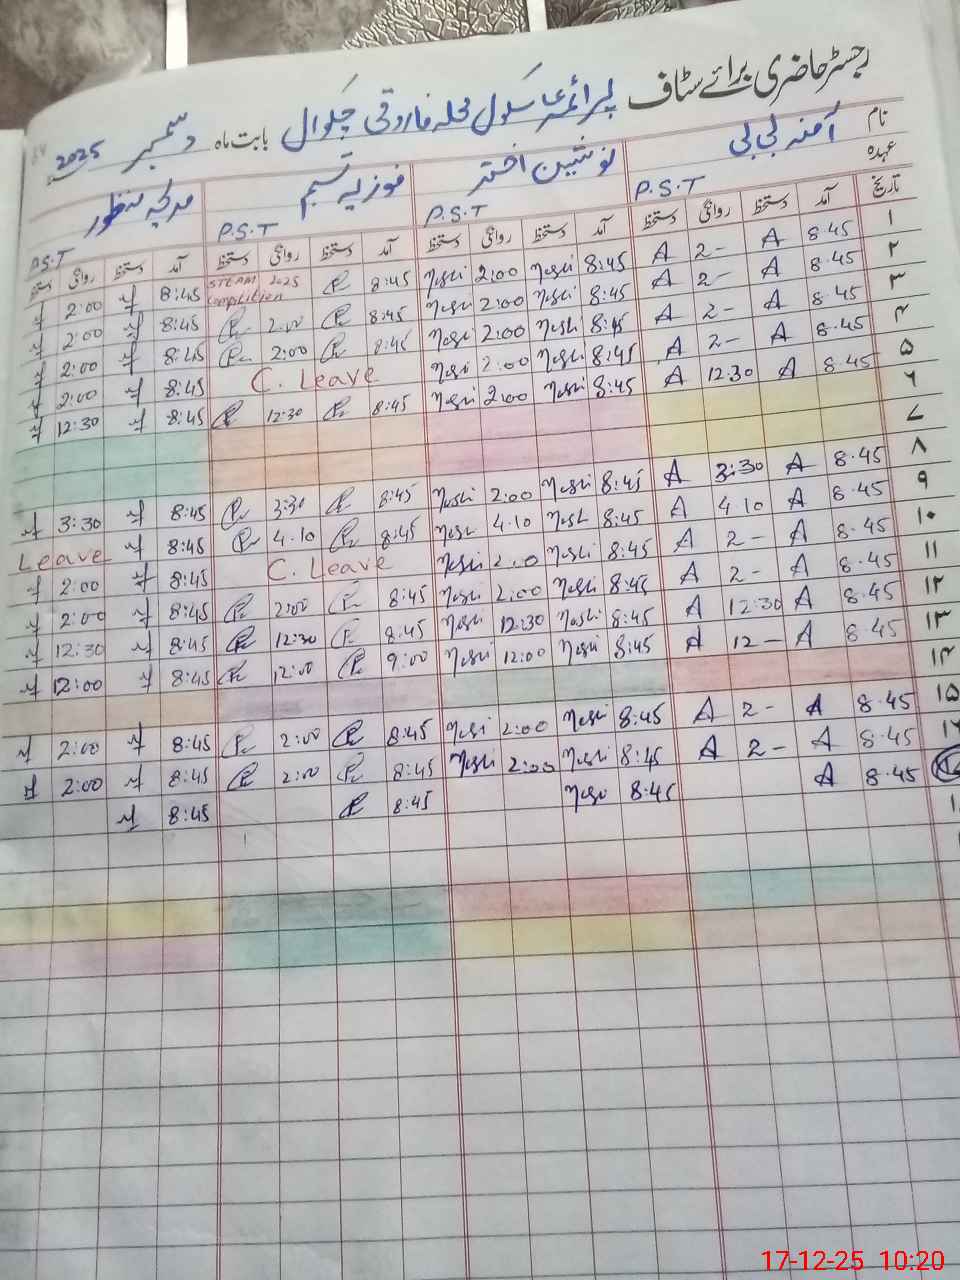 رجسٹر حاضری برائے سٹاف پرائمری سکول محلہ فاروقی چکوال بابت ماہ دسمبر 2025
نام آمنہ بی بی نوشین اختر فوزیہ تبسم مدیحہ منظور
عہدہ P.S.T P.S.T P.S.T P.S.T
تاریخ آمد دستخط روانگی دستخط آمد دستخط روانگی دستخط آمد دستخط روانگی دستخط آمد دستخط روانگی دستخط
۱ 8.45 A 2- A 8:45 Noshi 2:00 Noshi 8:45 STEAM Compitition 2025 8:45 2:00
۲ 8.45 A 2- A 8:45 Noshi 2:00 Noshi 8:45 2:00 8:45 2:00
۳ 8.45 A 2- A 8:45 Noshi 2:00 Noshi 8:45 2:00 8:45 2:00
۴ 8.45 A 2- A 8:45 Noshi 2:00 Noshi C. Leave 8:45 2:00
۵ 8.45 A 12:30 A 8:45 Noshi 2:00 Noshi 8:45 12:30 8:45 12:30
۶
۷
۸ 8.45 A 3:30 A 8:45 Noshi 2:00 Noshi 8:45 3:30 8:45 3:30
۹ 8.45 A 4.10 A 8:45 Noshi 4.10 Noshi 8:45 4.10 8:45 Leave
۱۰ 8.45 A 2- A 8:45 Noshi 2:00 Noshi C. Leave 8:45 2:00
۱۱ 8.45 A 2- A 8:45 Noshi 2:00 Noshi 8:45 2:00 8:45 2:00
۱۲ 8.45 A 12:30 A 8:45 Noshi 12:30 Noshi 8:45 12:30 8:45 12:30
۱۳ 8.45 A 12- A 8:45 Noshi 12:00 Noshi 9:00 12:00 8:45 12:00
۱۴
۱۵ 8.45 A 2- A 8:45 Noshi 2:00 Noshi 8:45 2:00 8:45 2:00
۱۶ 8.45 A 2- A 8:45 Noshi 2:00 Noshi 8:45 2:00 8:45 2:00
8.45 A 8:45 Noshi 8:45 8:45
17-12-25 10:20